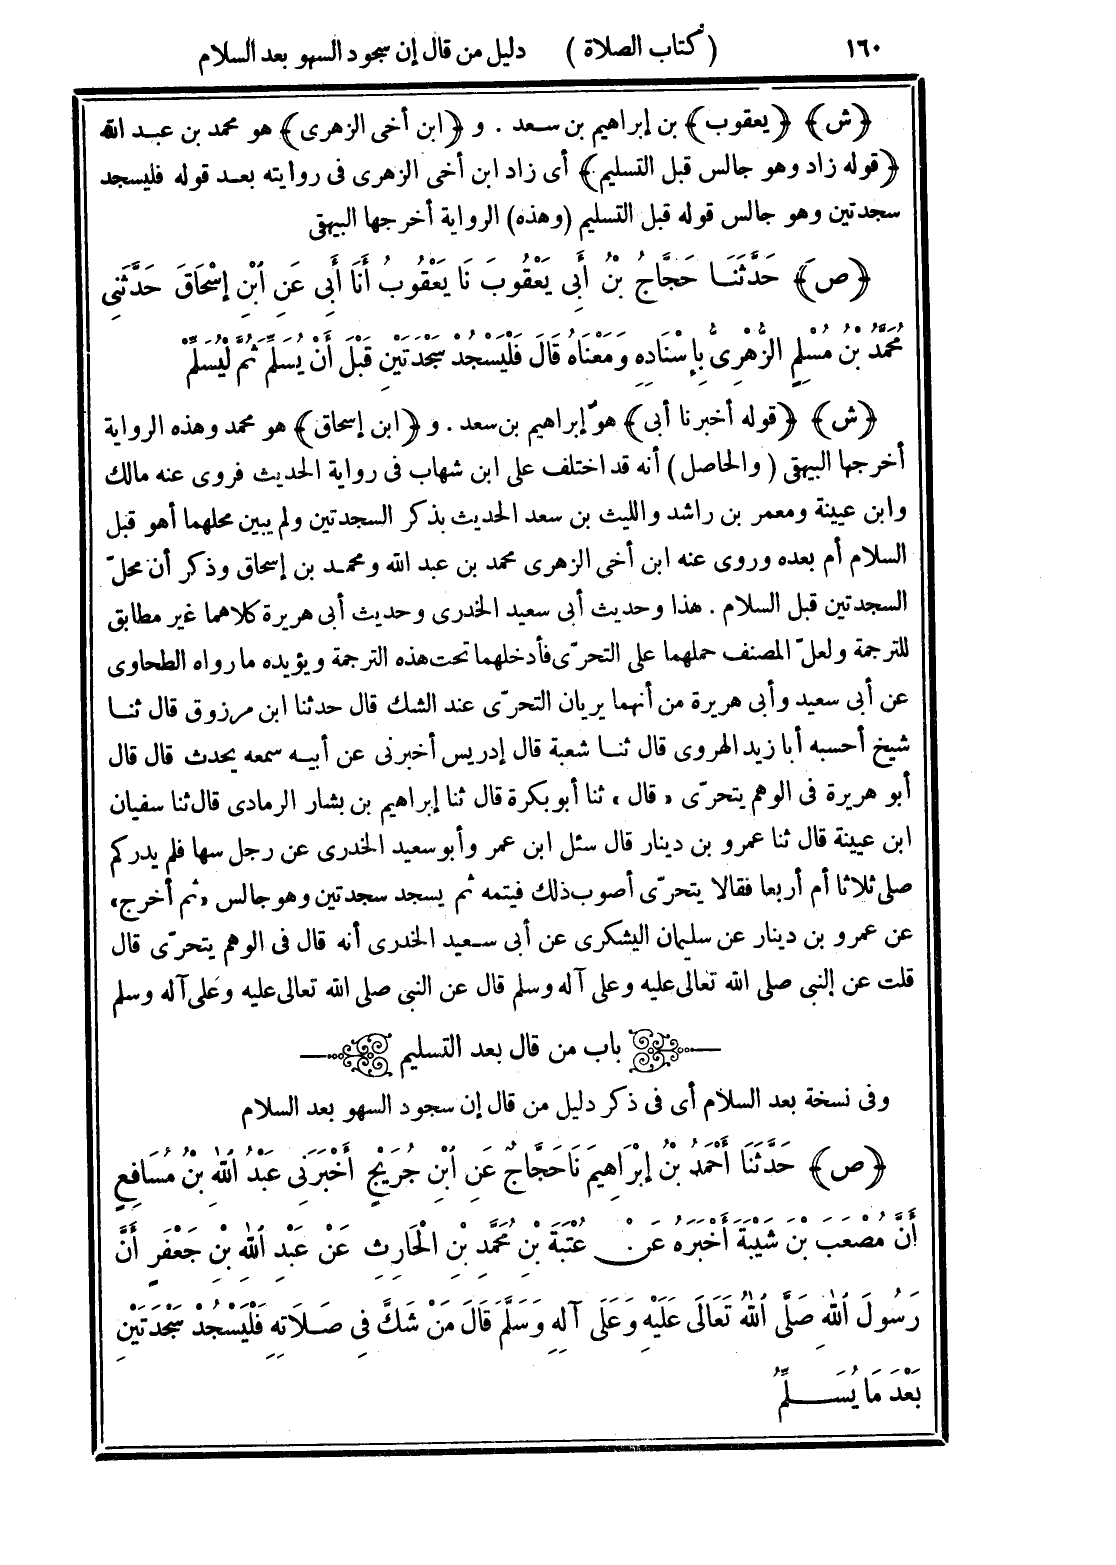 ١٦٠ ( كتاب الصلاة ) دليل من قال إن سجود السهو بعد السلام
﴿ش﴾ ﴿يعقوب﴾ بن إبراهيم بن سعد . و ﴿ابن أخى الزهرى﴾ هو محمد بن عبد الله
﴿قوله زاد وهو جالس قبل التسليم﴾ أى زاد ابن أخى الزهرى فى روايته بعد قوله فليسجد
سجدتين وهو جالس قوله قبل التسليم (وهذه) الرواية أخرجها البيهقى
﴿ص﴾ حَدَّثَنَا حَجَّاجُ بْنُ أَبِى يَعْقُوبَ نَا يَعْقُوبُ أَنَا أَبِى عَنِ ٱبْنِ إِسْحَاقَ حَدَّثَنِى
مُحَمَّدُ بْنُ مُسْلِمٍ الزُّهْرِىُّ بِإِسْنَادِهِ وَمَعْنَاهُ قَالَ فَلْيَسْجُدْ سَجْدَتَيْنِ قَبْلَ أَنْ يُسَلِّمَ ثُمَّ لْيُسَلِّمْ
﴿ش﴾ ﴿قوله أخبرنا أبى﴾ هو إبراهيم بن سعد . و ﴿ابن إسحاق﴾ هو محمد وهذه الرواية
أخرجها البيهقى ( والحاصل ) أنه قد اختلف على ابن شهاب فى رواية الحديث فروى عنه مالك
وابن عيينة ومعمر بن راشد والليث بن سعد الحديث بذكر السجدتين ولم يبين محلهما أهو قبل
السلام أم بعده وروى عنه ابن أخى الزهرى محمد بن عبد الله ومحمد بن إسحاق وذكر أن محلّ
السجدتين قبل السلام . هذا وحديث أبى سعيد الخدرى وحديث أبى هريرة كلاهما غير مطابق
للترجمة ولعلّ المصنف حملهما على التحرّى فأدخلهما تحت هذه الترجمة ويؤيده ما رواه الطحاوى
عن أبى سعيد وأبى هريرة من أنهما يريان التحرّى عند الشك قال حدثنا ابن مرزوق قال ثنا
شيخ أحسبه أبا زيد الهروى قال ثنا شعبة قال إدريس أخبرنى عن أبيه سمعه يحدث قال قال
أبو هريرة فى الوهم يتحرّى «قال» ثنا أبو بكرة قال ثنا إبراهيم بن بشار الرمادى قال ثنا سفيان
ابن عيينة قال ثنا عمرو بن دينار قال سئل ابن عمر وأبو سعيد الخدرى عن رجل سها فلم يدركم
صلى ثلاثا أم أربعا فقالا يتحرّى أصوب ذلك فيتمه ثم يسجد سجدتين وهو جالس «ثم أخرج»
عن عمرو بن دينار عن سليمان اليشكرى عن أبى سعيد الخدرى أنه قال فى الوهم يتحرّى قال
قلت عن النبى صلى الله تعالى عليه وعلى آله وسلم قال عن النبى صلى الله تعالى عليه وعلى آله وسلم
باب من قال بعد التسليم
وفى نسخة بعد السلام أى فى ذكر دليل من قال إن سجود السهو بعد السلام
﴿ص﴾ حَدَّثَنَا أَحْمَدُ بْنُ إِبْرَاهِيمَ نَا حَجَّاجٌ عَنِ ٱبْنِ جُرَيْجٍ أَخْبَرَنِى عَبْدُ ٱللهِ بْنُ مُسَافِعٍ
أَنَّ مُصْعَبَ بْنَ شَيْبَةَ أَخْبَرَهُ عَنْ عُتْبَةَ بْنِ مُحَمَّدِ بْنِ الْحَارِثِ عَنْ عَبْدِ ٱللهِ بْنِ جَعْفَرٍ أَنَّ
رَسُولَ ٱللهِ صَلَّى ٱللهُ تَعَالَى عَلَيْهِ وَعَلَى آلِهِ وَسَلَّمَ قَالَ مَنْ شَكَّ فِى صَلَاتِهِ فَلْيَسْجُدْ سَجْدَتَيْنِ
بَعْدَ مَا يُسَلِّمُ